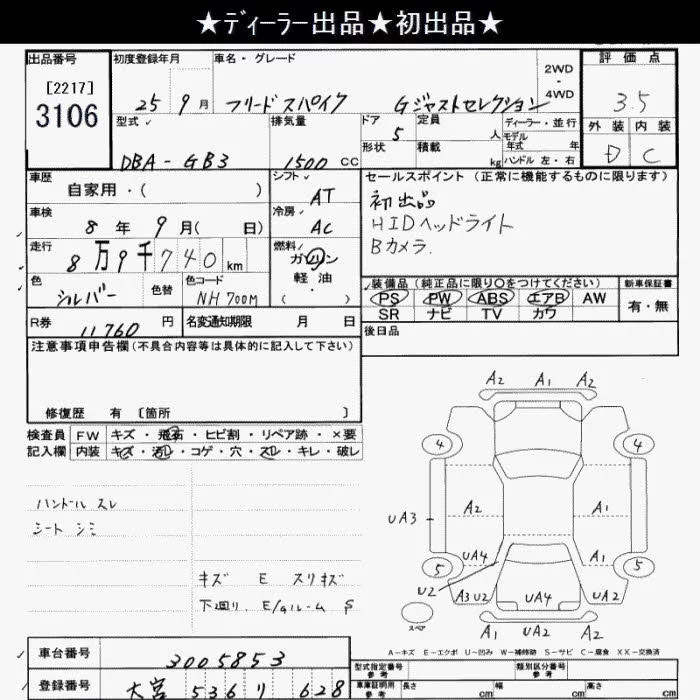 ★ディーラー出品★初出品★
出品番号 初度登録年月 車名・グレード 評価点
[2217]
3106
25 9月 フリードスパイク Gジャストセレクション 2WD・4WD 3.5
型式 排気量 ドア 定員 ディーラー・並行 外装 内装
DBA-GB3 1500 CC 5 人 モデル年式 年 D C
形状 積載 kg ハンドル 左・右
車歴 シフト セールスポイント (正常に機能するものに限ります)
自家用・( ) AT 初出品
車検 冷房 HIDヘッドライト
8年 9月( 日) AC Bカメラ.
走行 燃料
8万9千740km ガソリン
軽・油
( ・ )
色 色替 色コード 装備品 (純正品に限り〇をつけてください) 新車保証書
シルバー NH700M PS PW ABS エアB AW 有・無
SR ナビ TV カワ
R券 11760円 名変通知期限 月 日 後日品
注意事項申告欄(不具合内容等は具体的に記入して下さい)
修復歴 有 〔箇所 〕
検査員 FW キズ・飛石・ヒビ割・リペア跡・×要
記入欄 内装 キズ・汚レ・コゲ・穴・スレ・キレ・破レ
ハンドル スレ
シート シミ
キズ E スリキズ
下廻り. E/gルーム S
A2 A1 A2
4 4
UA3 A2 A1
UA4 A1
5 5
U2 A3 U2 UA4 UA2
スペア A1 UA2 A2
A-キズ E-エクボ U-凹み W-補修跡 S-サビ C-腐食 XX-交換済
車台番号 3005853
型式指定番号 参考 類別区分番号 参考
登録番号 大宮 536 リ 628
車庫証明用 参考 長さ cm 幅 cm 高さ cm